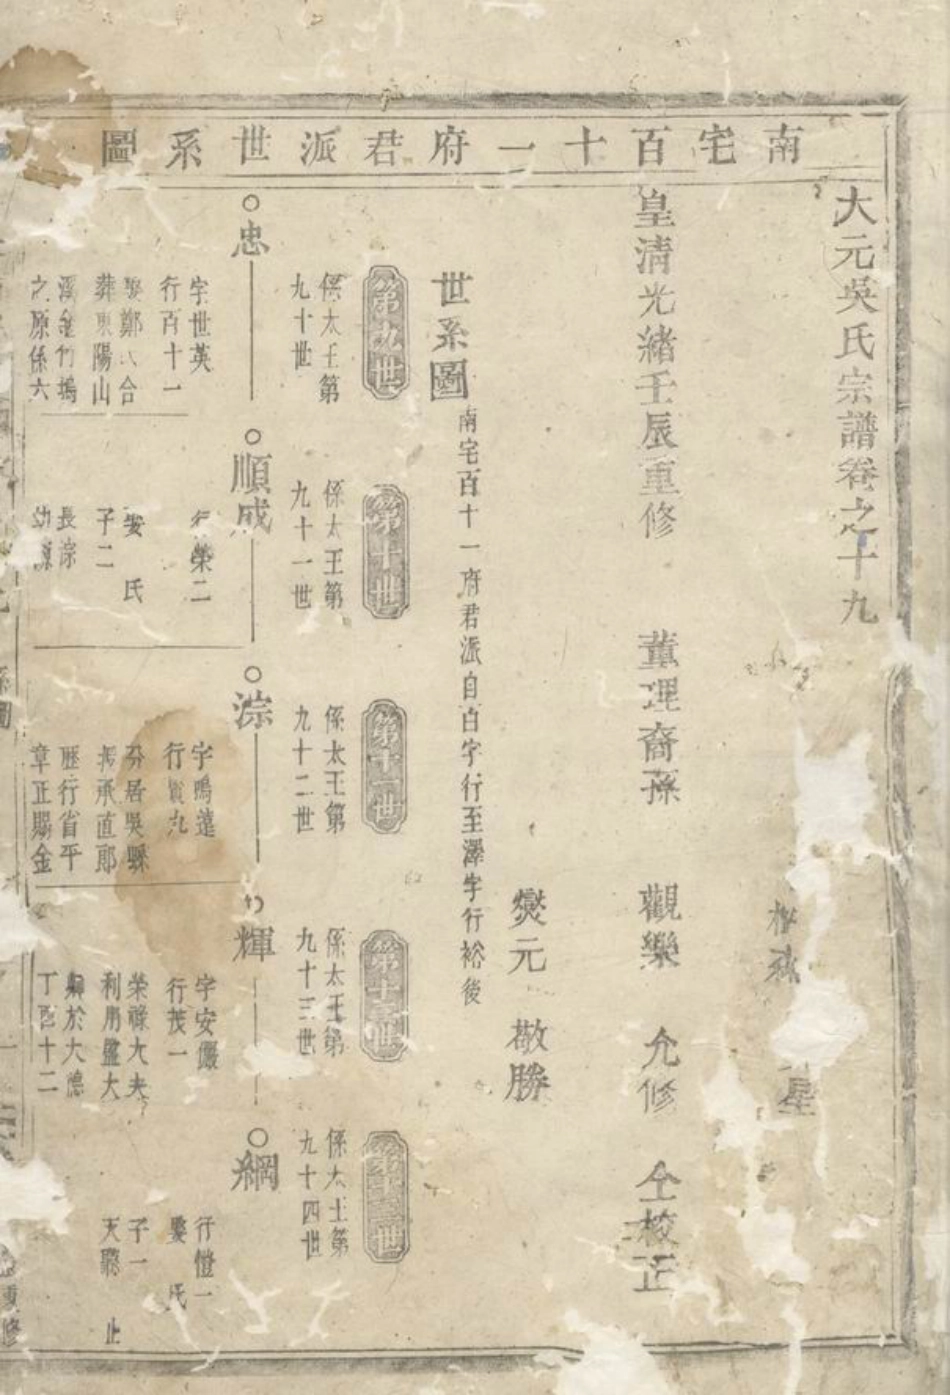 南宅百十一府君派世系圖
大元吳氏宗譜卷之十九
星
皇清光緒壬辰重修 董理裔孫 觀樂 允修 仝校正
爕元 敬勝
世系圖 南宅百十一府君派自百字行至澤字行裕後
第九世
係太王第
九十世
忠
字世英
行百十一
娶鄭氏合
葬東陽山
之原係六
第十世
係太王第
九十一世
順成
行榮二
安氏
子二
長淙
幼源
第十一世
係太王第
九十二世
淙
字鳴遠
行貴九
分居吳縣
授承直郎
歷行省平
章正賜金
第十二世
係太王第
九十三世
輝
字安儼
行茂一
榮祿大夫
利用監大
於大德
丁酉十二
第十三世
係太王第
九十四世
綱
行愷一
娶 氏
子一
天聰 止